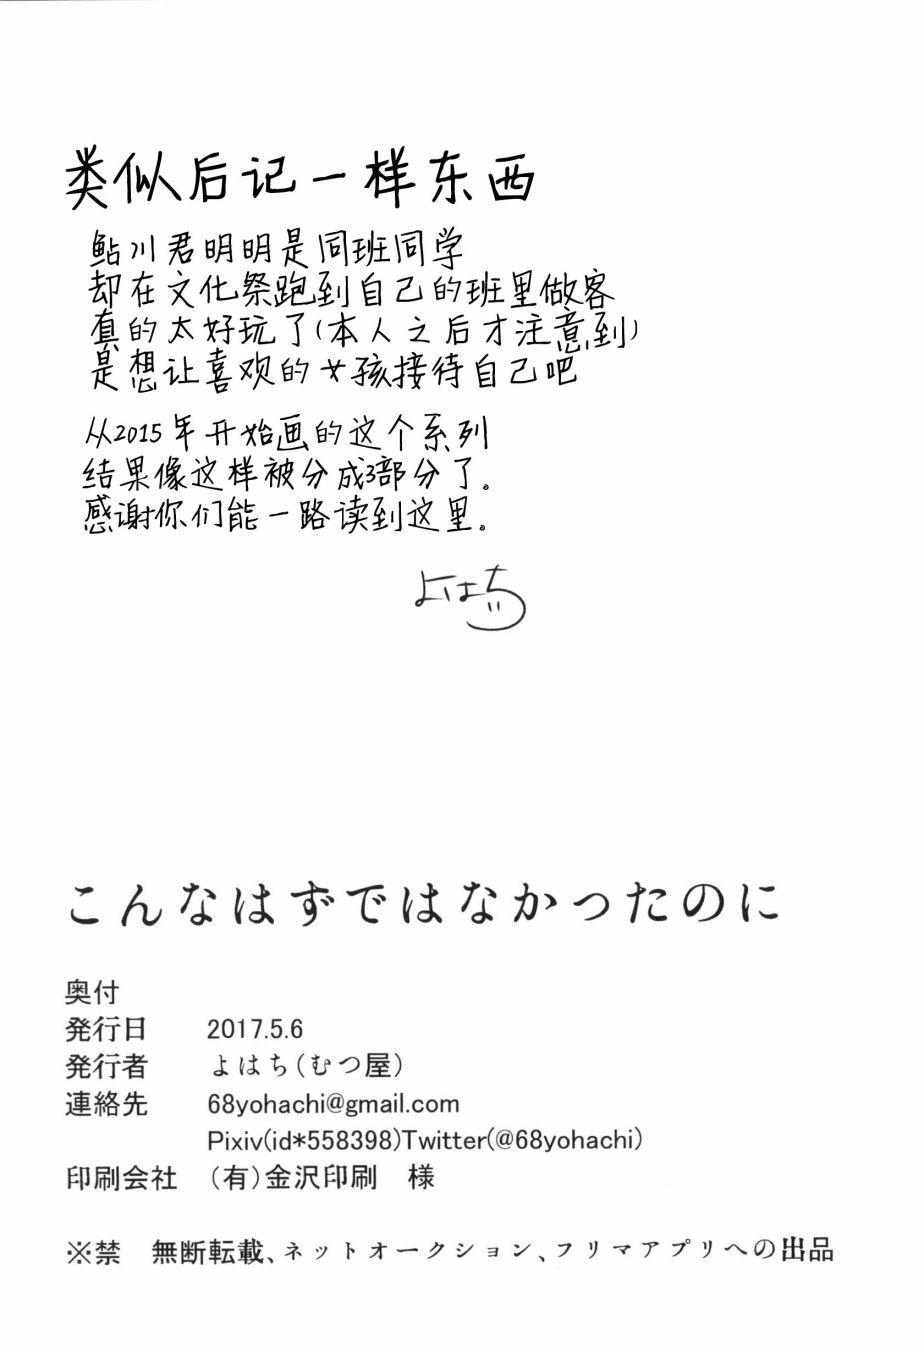 类似后记一样东西
鲇川君明明是同班同学
却在文化祭跑到自己的班里做客
真的太好玩了(本人之后才注意到)
是想让喜欢的女孩接待自己吧
从2015年开始画的这个系列
结果像这样被分成3部分了。
感谢你们能一路读到这里。
よはち
こんなはずではなかったのに
奥付
発行日 2017.5.6
発行者 よはち(むつ屋)
連絡先 68yohachi@gmail.com
Pixiv(id*558398)Twitter(@68yohachi)
印刷会社 (有)金沢印刷 様
※禁 無断転載、ネットオークション、フリマアプリへの出品